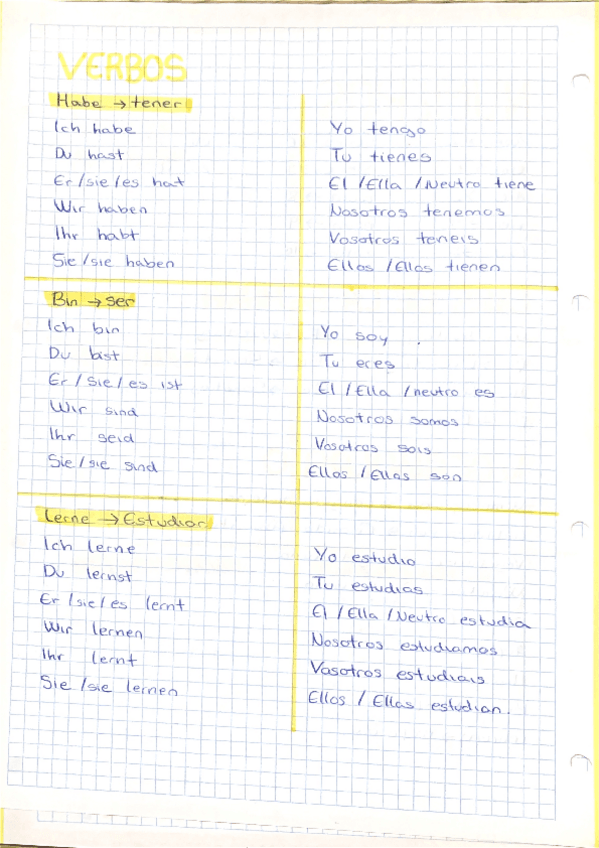 VERBOS
Habe → tener
Ich habe
Du hast
Er/sie/es hat
Wir haben
Ihr habt
Sie/sie haben
Yo tengo
Tu tienes
El /Ella /Neutro tiene
Nosotros tenemos
Vosotros teneis
Ellos /Ellas tienen
Bin → ser
Ich bin
Du bist
Er/Sie/es ist
Wir sind
Ihr seid
Sie/sie sind
Yo soy .
Tu eres
El /Ella /neutro es
Nosotros somos
Vosotros sois
Ellos /Ellas son
Lerne → Estudiar
Ich lerne
Du lernst
Er /sie/es lernt
Wir lernen
Ihr lernt
Sie /sie lernen
Yo estudio
Tu estudias
El /Ella /Neutro estudia
Nosotros estudiamos
Vosotros estudiais
Ellos / Ellas estudian.